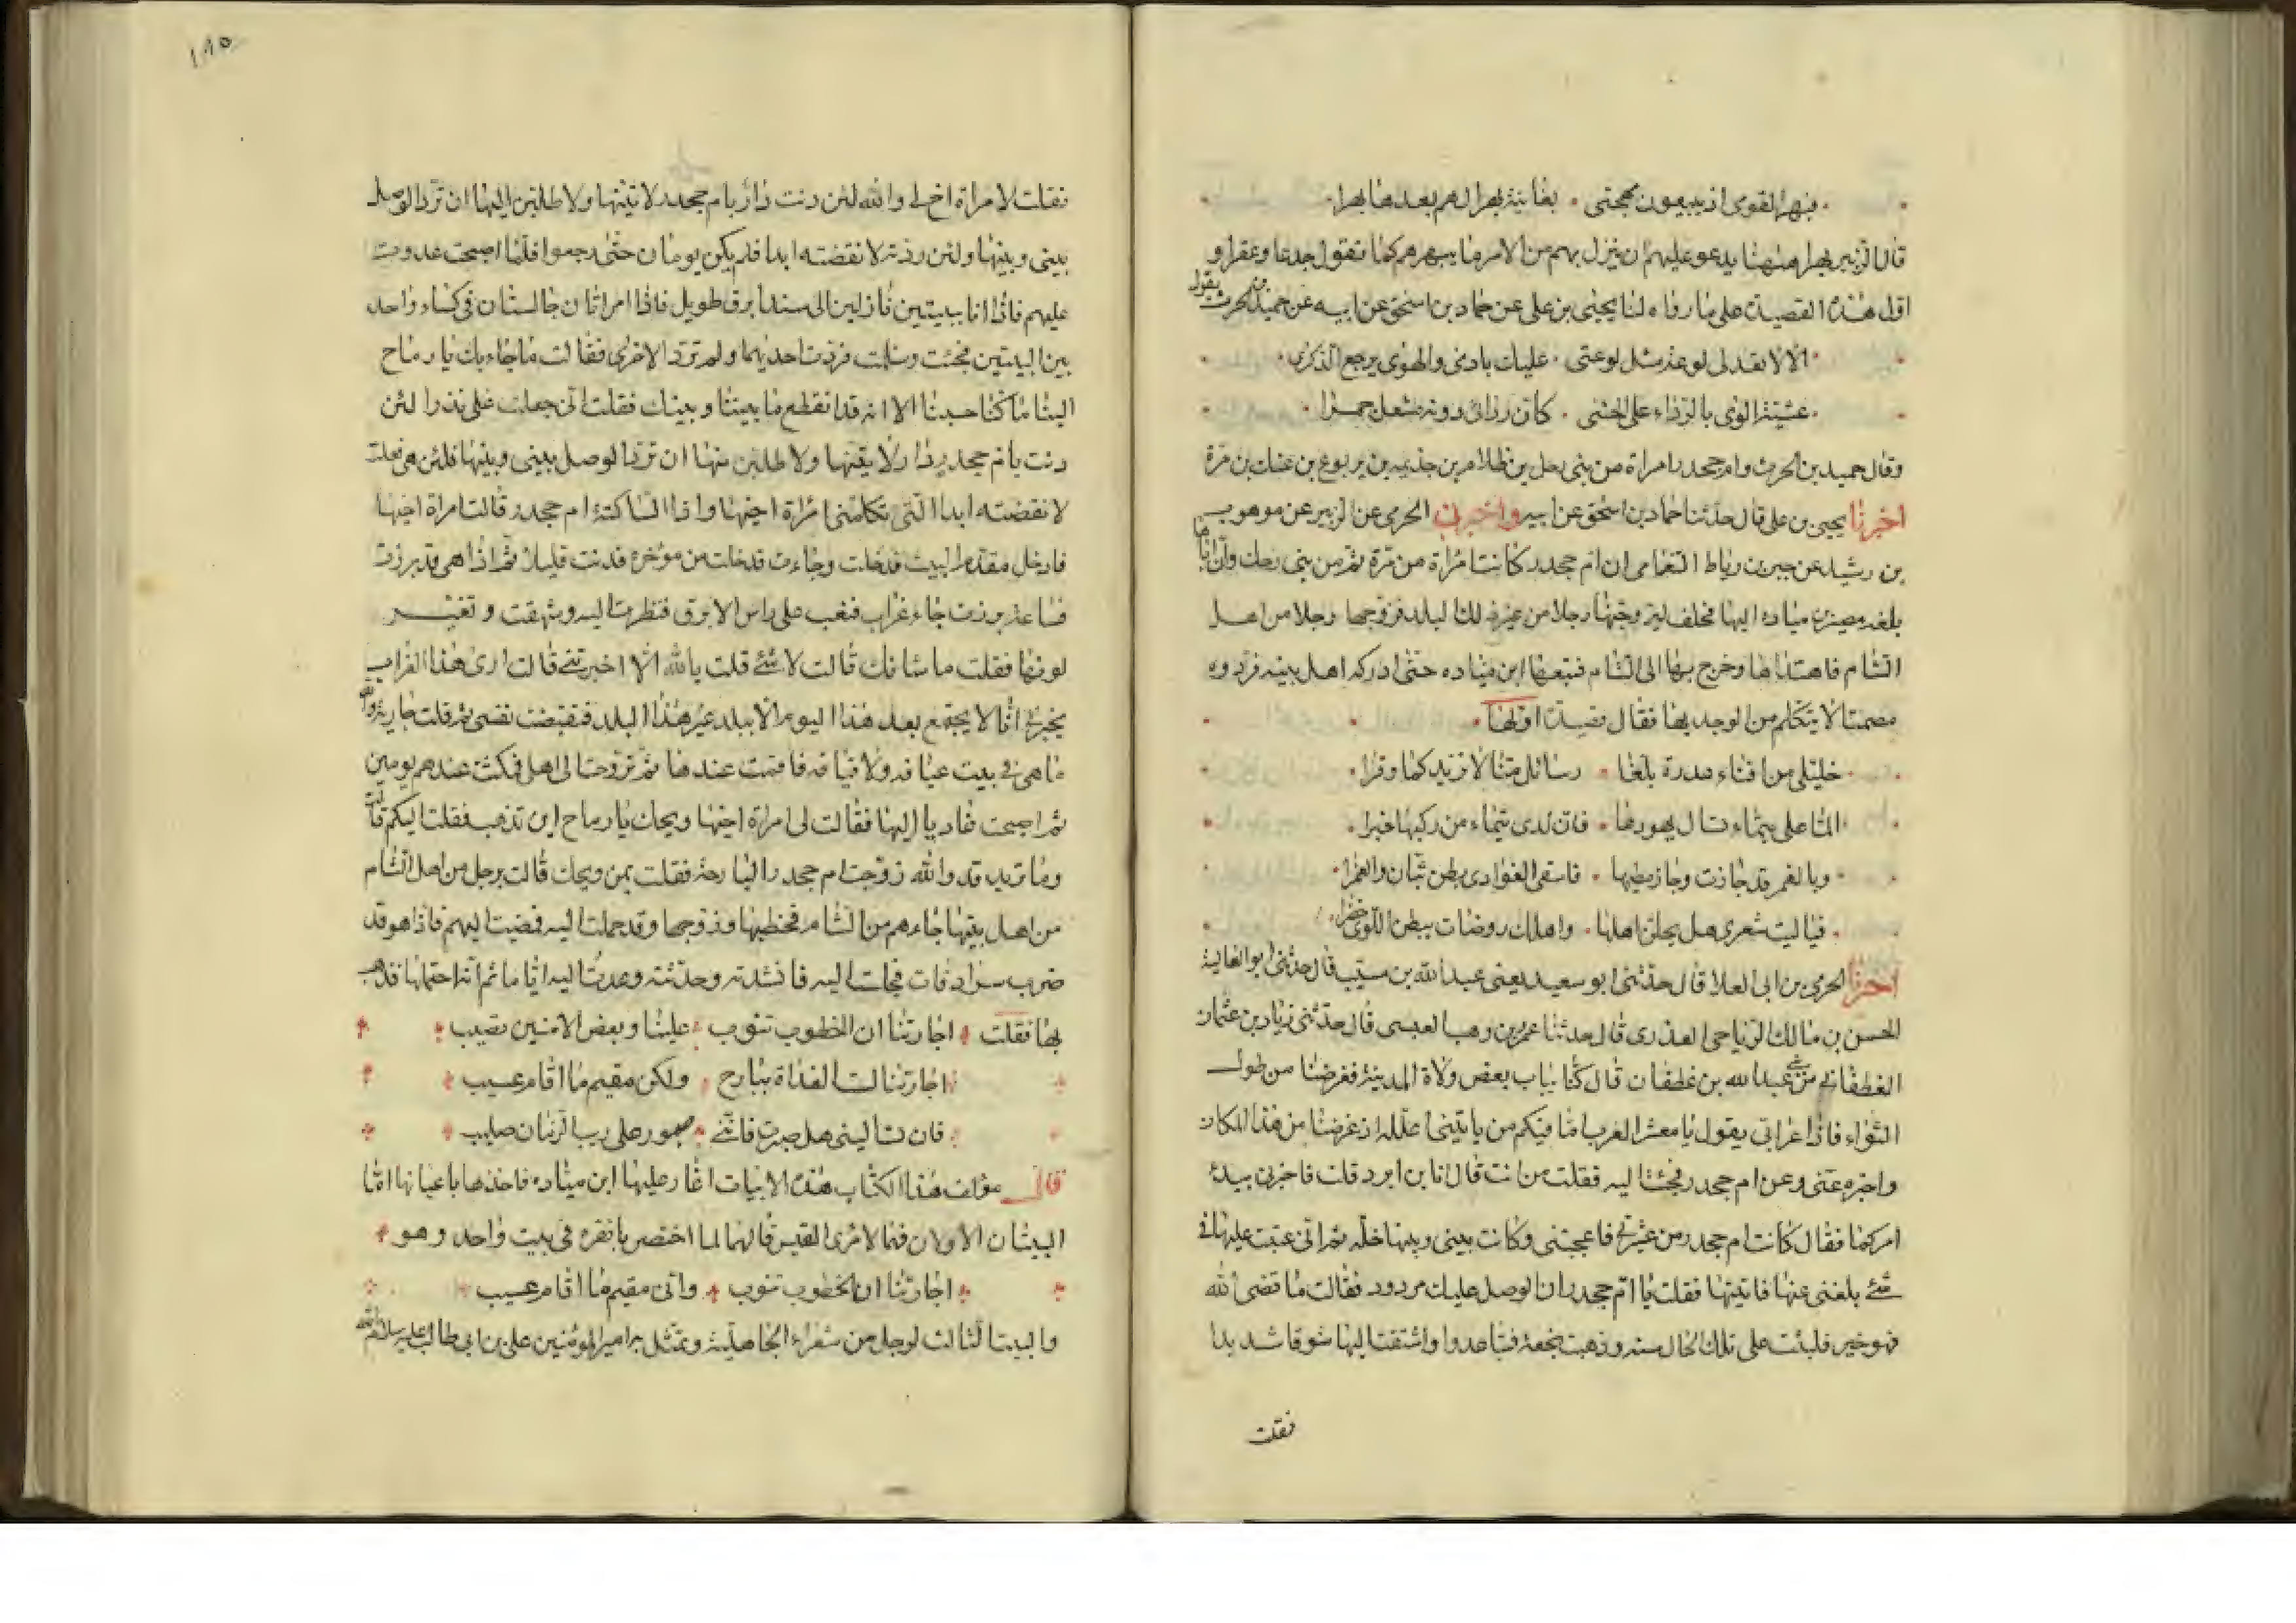 فبهرا لقومى اذ يبيعون مهجتى ٠ بغانية بهرا لهم بعدها بهرا
قال الزبير بهرا ههنا يدعو عليهم ان ينزل بهم من الامر ما يبهرهم كما تقول جدعا وعقرا و
اول هذه القصيدة على ما رواه لنا يحيى بن على عن حماد بن اسحق عن ابيه عن حميد بن الحرث يقول
الا لا تعد لى لوعة مثل لوعتى ٠ عليك بادمى والهوى يرجع الذكرى
عشية الوى بالرداء على الحشى ٠ كان ردائى دونه مشعل جمرا
وقال حميد بن الحرث وام جحدر امراة من بنى رحل بن ظلام بن جذيمه بن يربوع بن غيظ بن مرة
اخبرنا يحيى بن على قال حدثنا حماد بن اسحق عن ابيه واخبرنى الحرمى عن الزبير عن موهوب
بن رشيد عن جبر بن رباط النعامى ان ام جحدر كانت امراة من مرة ثم من بنى رحل وان اباها
بلغه مصير بن مياده اليها فحلف ليزوجنها رجلا من غير ذلك البلد فزوجها رجلا من اهل
الشام فاهتداها وخرج بها الى الشام فتبعها ابن مياده حتى ادركه اهل بيته فردوه
مصمتا لا يتكلم من الوجد بها فقال قصيدة اولها
خليلى من افناء عذرة بلغا ٠ رسائل منا لا تزيد كما وقرا
الما على تيماء نسال يهودها ٠ فان لدى تيماء من ركبها خبرا
وبالغمر قد جازت وجاز مطيها ٠ فاسقى الغوادى بطن نيان والغمرا
فيا ليت شعرى هل يحلن اهلنا ٠ واهلك روضات ببطن اللوى خضرا
اخبرنا الحرمى بن ابى العلا قال حدثنى ابو سعيد يعنى عبد الله بن شبيب قال حدثنى ابو العالية
الحسن بن مالك الرياحى العذرى قال حدثنا عمر بن وهب العبسى قال حدثنى زياد بن عثمان
الغطفانى من بنى عبد الله بن غطفان قال كنا بباب بعض ولاة المدينة فغرضنا من طول
الثواء فاذا اعرابى يقول يا معشر العرب اما فيكم من ياتينى اعلله اذ غرضنا من هذا المكان
واخبره عنى وعن ام جحدر فجئت اليه فقلت من انت قال انا بن ابرد قلت فاخبرنى ببدء
امركما فقال كانت ام جحدر من عشيرتى فاعجبتنى وكانت بينى وبينها خلة ثم انى عتبت عليها فى
شئ بلغنى عنها فاتيتها فقلت يا ام جحدر ان الوصل عليك مردود فقالت ما قضى الله
فهو خير فلبثت على تلك الحال سنه وذهبت بهم نجعة فتباعدوا واشتقت اليها شوقا شديدا
فقلت
١٨٥
فقلت لامراة اخ لى والله لئن دنت دار بام جحدر لاتينها ولاطلبن اليها ان ترد الوصل
بينى وبينها ولئن ردته لا نقضته ابدا فلم يكن يومان حتى رجعوا فلما اصبحت غدوت
عليهم فاذا انا ببيتين نازلين الى سند ابرق طويل فاذا امراتان جالستان فى كساء واحد
بين البيتين فجئت وسلمت فردت احديهما ولم ترد الاخرى فقالت ما جاء بك يا رماح
الينا ما كنا حسبنا الا انه قد انقطع ما بيننا وبينك فقلت انى جعلت على نذرا لئن
دنت بام جحدر دار لاتينها ولاطلبن منها ان ترد الوصل بينى وبينها فلئن هى فعلت
لا نقضته ابدا التى تكلمنى امراة اخيها واذا الساكتة ام جحدر قالت امراة اخيها
فادخل مقدم البيت فدخلت وجاءت فدخلت من مؤخره فدنت قليلا ثم اذا هى قد برزت
فساعة برزت جاء غراب فنعب على راس الابرق فنظرت اليه وشهقت وتغير
لونها فقلت ما شانك قالت لا شئ قلت بالله الا اخبرتنى قالت ارى هذا الغراب
يخبرنى انا لا نجتمع بعد هذا اليوم الا ببلد غير هذا البلد فتقبضت نفسى ثم قلت جارية والله
ما هى فى بيت عيافه ولا قيافه فاقمت عندها ثم تروحت الى اهلى فمكثت عندهم يومين
ثم اصبحت غاديا اليها فقالت لى امراة اخيها ويحك يا رماح اين تذهب فقلت اليكم قالت
وما تريد قد والله زوجت ام جحدر البارحة فقلت بمن ويحك قالت برجل من اهل الشام
من اهل بيتها جاءهم من الشام فخطبها فزوجها وقد حملت اليه فمضيت اليهم فاذا هو قد
ضرب سرادقات فجلست اليه فانشدته وحدثته وعدت اليه اياما ثم انه احتملها فذهب
بها فقلت ٠ اجارتنا ان الخطوب تنوب ٠ علينا وبعض الامنين تصيب
اجارتنا لست الغداة ببارح ٠ ولكن مقيم ما اقام عسيب
فان تسالينى هل صبرت فاننى ٠ صبور على ريب الزمان صليب
قال مؤلف هذا الكتاب هذه الابيات اغار عليها ابن مياده فاخذها باعيانها اما
البيتان الاولان فهما لامرئ القيس قالهما لما احتضر بانقره فى بيت واحد وهو
اجارتنا ان الخطوب تنوب ٠ وانى مقيم ما اقام عسيب
والبيت الثالث لرجل من شعراء الجاهلية وتمثل به امير المومنين على بن ابى طالب عليه سلام الله